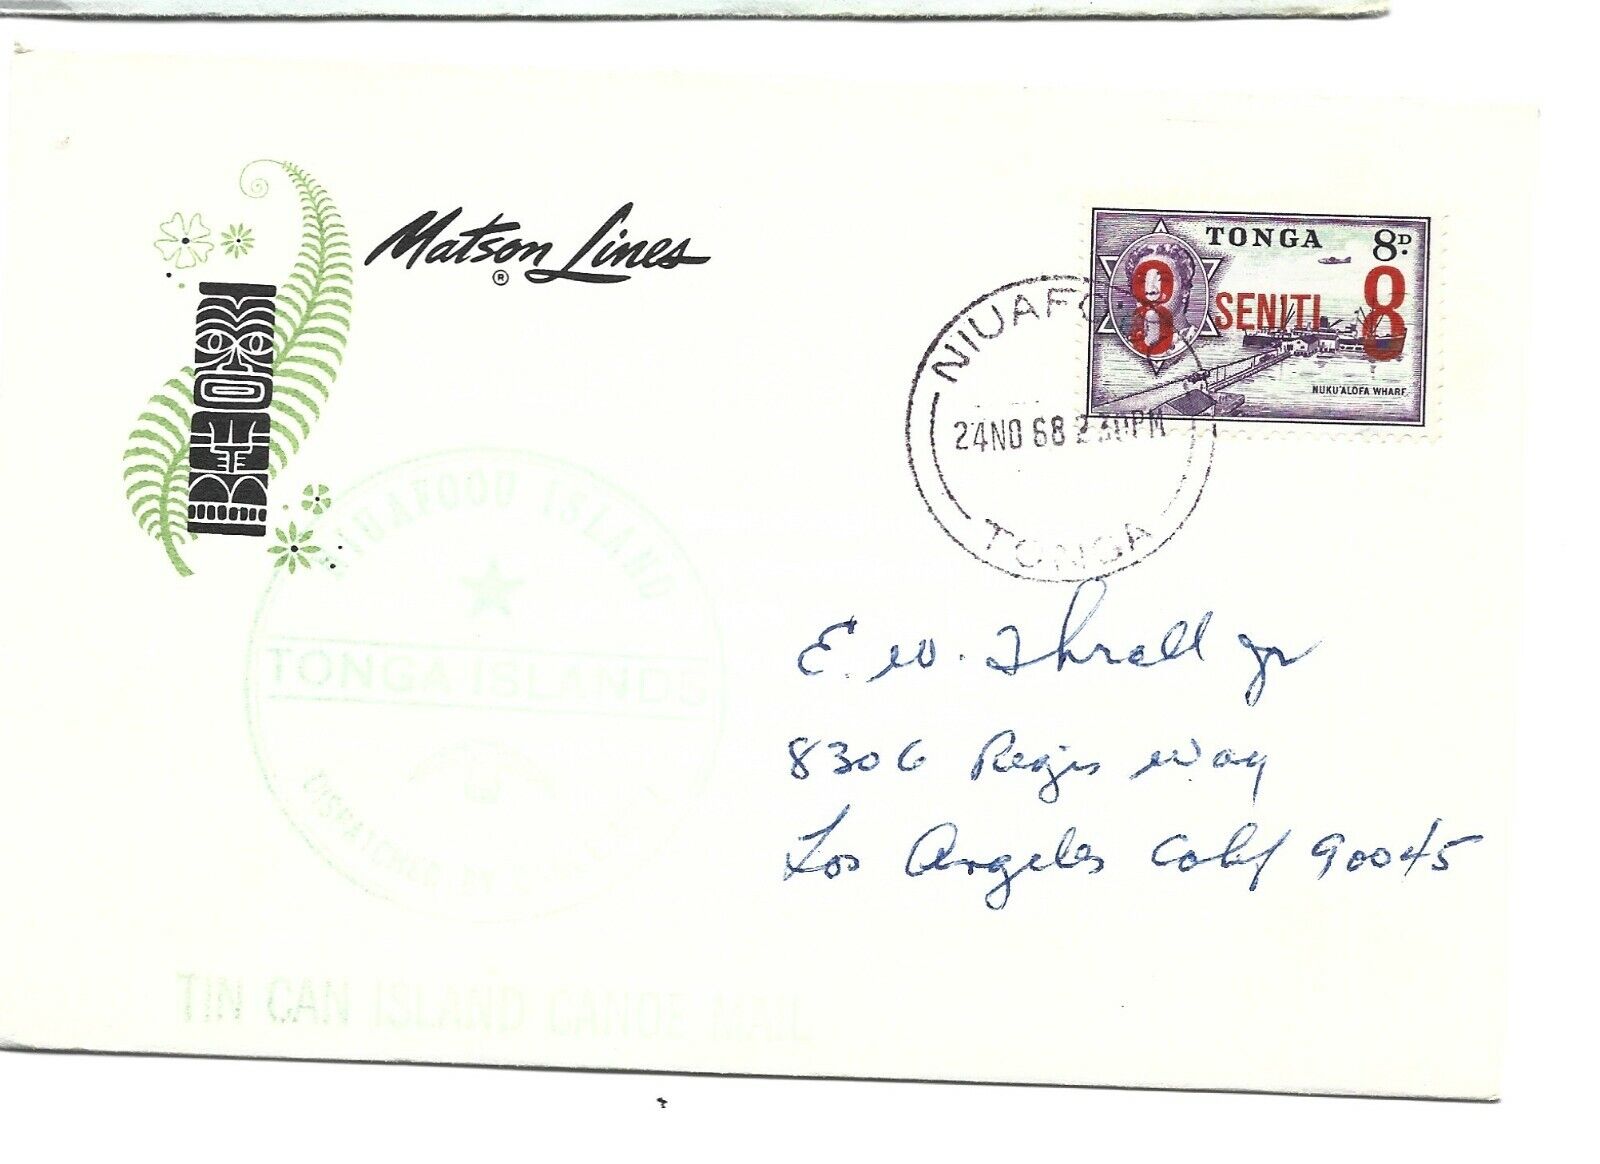 Matson Lines
®
TONGA 8D.
8 SENITI 8
NUKU'ALOFA WHARF
NIUAFO'OU
24NO 68 2 30PM
TONGA
NIUAFOOU ISLAND
TONGA ISLANDS
DISPATCHED BY
E. W. Thrall Jr
8306 Regis Way
Los Angeles Calif 90045
TIN CAN ISLAND CANOE MAIL